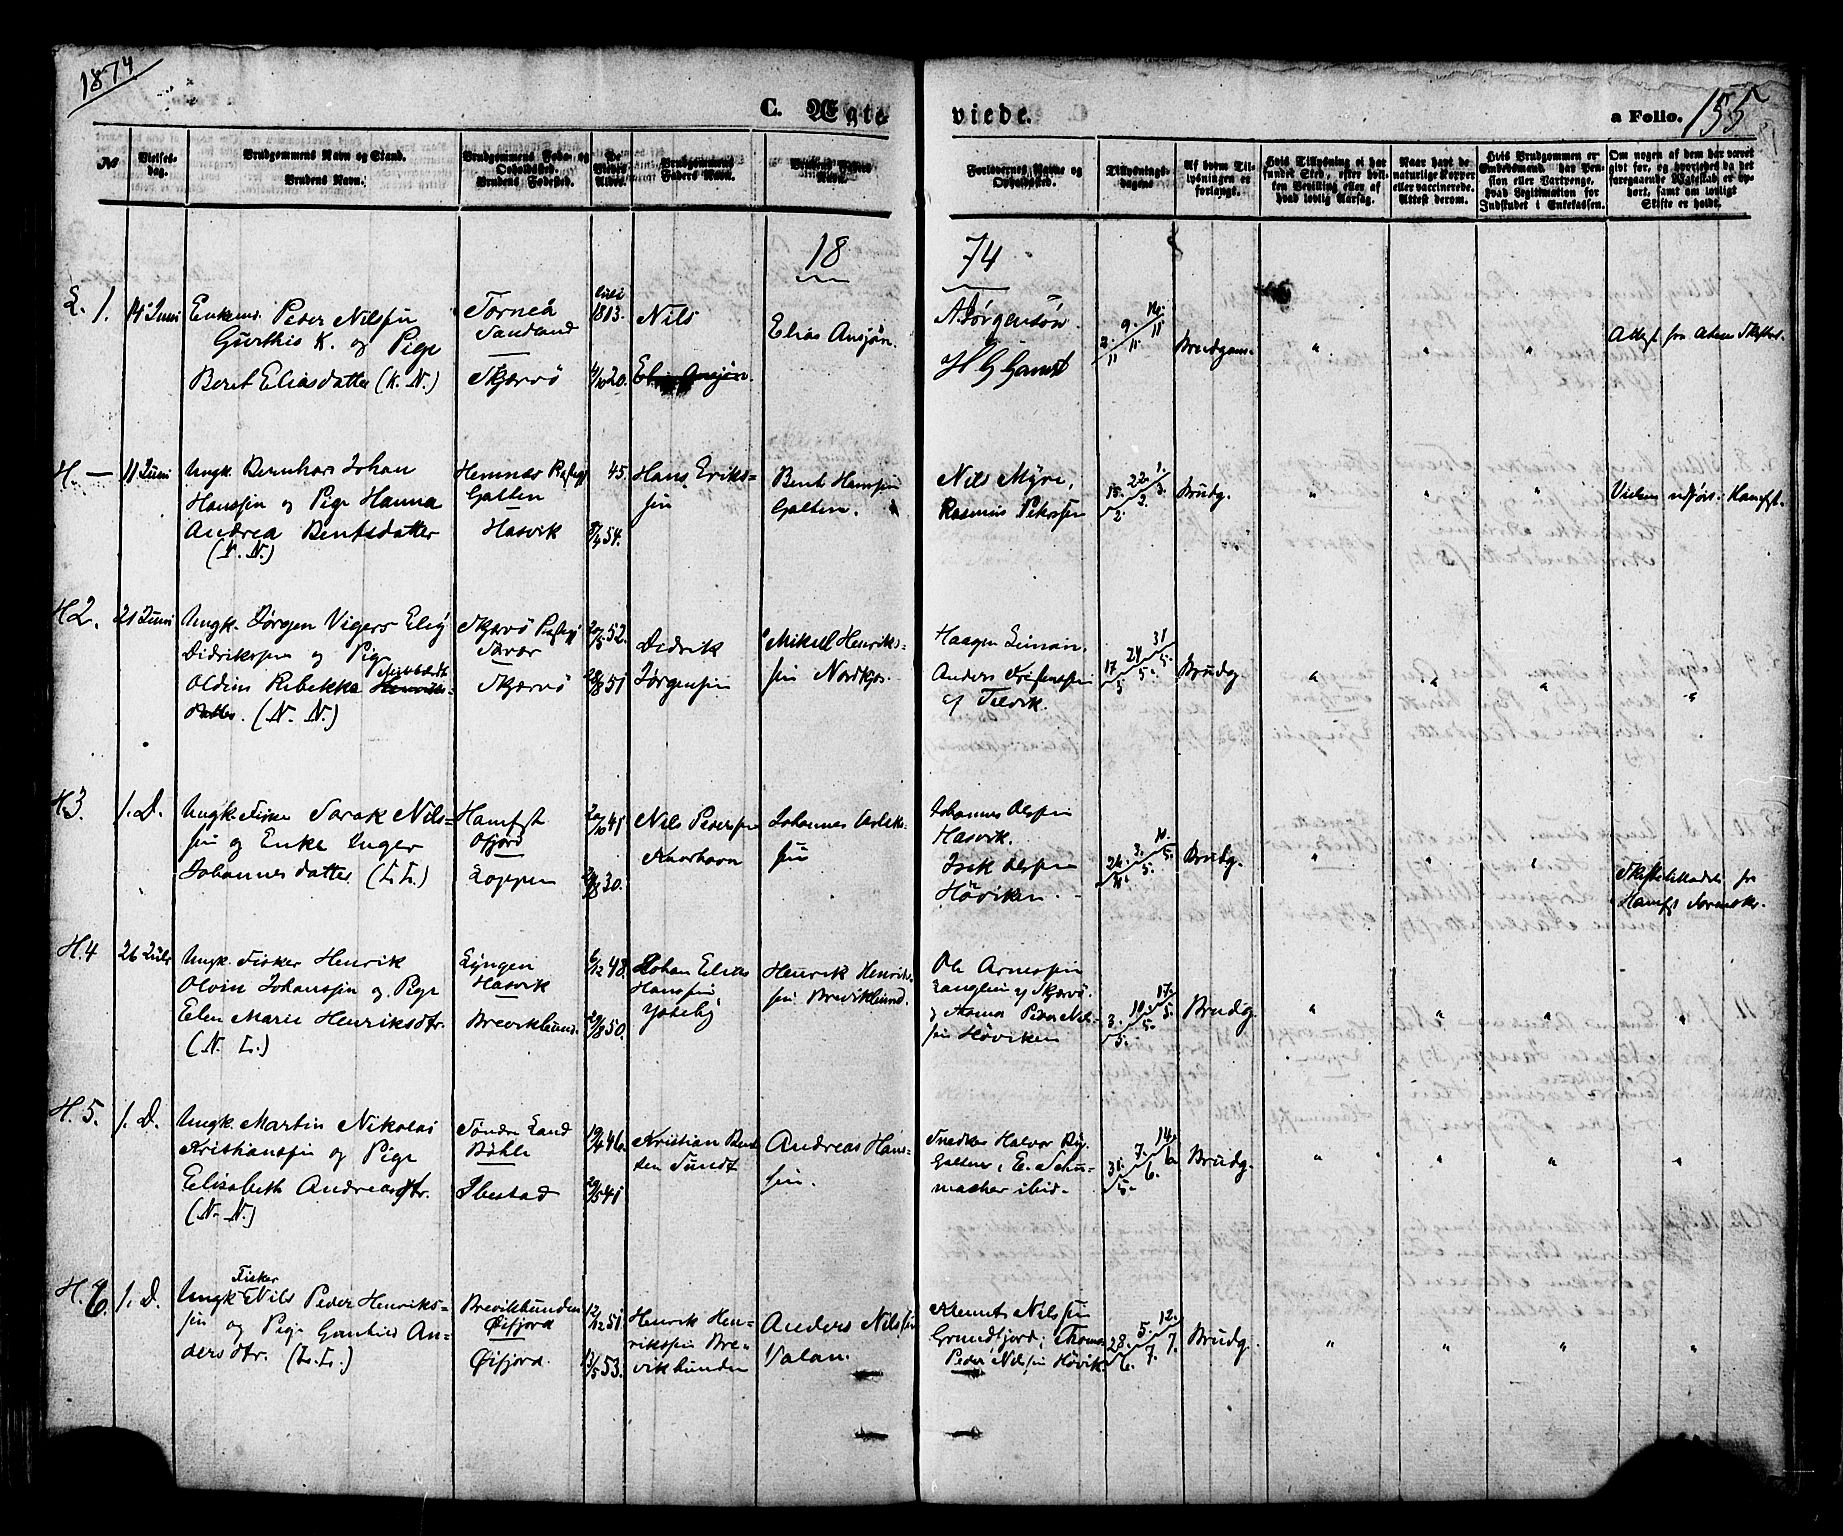 1874
C. Ægte
viede.
a Folio. 155
№
Vielses-
dag.
Brudgommens Navn og Stand.
Brudens Navn.
Brudgommens Føde- og
Opholdssted.
Brudens Fødested.
De
Viedes
Alder.
Brudgommens
Faders Navn.
Brudens Faders
Navn.
Forlovernes Navne og
Opholdssted.
Tillysnings-
dagene
Af hvem Til-
lysningen er
forlangt.
Hvis Tillysning ei har
fundet Sted, efter hvil-
ken Bevilling eller af
hvad lovlig Aarsag.
Naar havt de
naturlige Kopper
eller vaccinerede.
Attest derom.
Hvis Brudgommen er
Embedsmand, hav Pen-
sion eller Vartpenge,
hvad Legitimation for
Indskudet i Enkekassen.
Om nogen af dem har været
givt før, og hvorledes da det
foregaaende Ægteskab er op-
hørt, samt om lovligt
Skifte er holdt.
18
74
L. 1.
14 Juni
Enkem. Peder Nilssen
Gurthis K. og Pige
Beret Eliasdatter (K. N.)
Torneå
Sandland
Skjervø
Juli
1813.
4/10 20.
Nils
Elias Ansjøn.
A Jørgensön.
H G Gamst
2./11 9./11. 16./11
Brudgom.
"
"
"
Attest fra
H. —
11 Juni
Ungk. Bernhard Johan
Hanssen og Pige Hanna
Andrea Bentsdatter
(N. N.)
Hemnes Præstegj
Galten
Hasvik
45.
8/4 54.
Hans Eriks-
sen
Bent Hanssen
Galten.
Nils Myre,
Rasmus Peterssen
15./2. 22./2. 1./3.
Brudg.
"
"
"
Vielsen udført i Hamfst.
H 2.
21 Juni
Ungk. Jørgen Vigers Elig
Didrikssen og Pige
Oldine Rebekka Henriks-
Mikkels
datter. (N. N.)
Skjervø Præstegj
Skjervø
20/5 52.
28/8 51
Didrik
Jørgensen
Mikkel Henriks-
sen Nordkjos.
Haagen Simon.
Anders
af Talvik.
17/5 24/5. 31/5.
Brudg.
"
"
"
"
H. 3
s. D.
Ungk. Fisker Sarak Nils-
sen og Enke Inger
Johannesdatter (L. L.)
Hamfst
Ofjord
Loppen
20/10 41
30.
Nils Pederssen
Kaarhavn
Johannes
sen
Johannes Olssen
Hasvik.
Isak Olssen
Höviken.
26./4. 3./5. 10./5.
Brudg.
"
"
"
fra
Hamfst
H. 4
26 Juli
Ungk. Fisker Henrik
Olvin Johanssen og Pige
Elen Marie Henriksdtr.
(N. L.)
Lyngen
Hasvik
Breviklund.
6/12 48.
29/8 50.
Johan Elias
Hanssen,
Henrik Henriks-
sen Breviklund.
Ole Arnessen
af Skjervö.
og Peder Nils-
sen Höviken
3./5. 10./5. 17./5.
Brudg.
"
"
"
"
H. 5.
s. D.
Ungk. Martin Nikolai
Kristianssen og Pige
Elisabeth Andreasdtr.
(N. N.)
Söndre Land
Böhle
Ibestad
19/4 46.
20/5 41
Kristian Bent
sen Sundt
Andreas Hans-
sen.
Snedker Halvor Byg.
Galten; E. Schu-
macher ibid.
31./5. 7./6. 14./6.
Brudg.
"
"
"
"
H. 6.
s. D.
Fisker
Ungk. Nils Peder Henriks-
sen og Pige Gunhild An-
dersdtr. (L. L.)
Brevikbunden
Öifjord
Öifjord.
12/12 51
13/5 53.
Henrik Hen-
rikssen Bre-
vikbunden
Anders Nilssen
Valan.
Klemet Nilssen
Grundfjord; Thomas
Peder Nilssen Hövik
28./6. 5./7. 12./7.
Brudg.
"
"
"
"